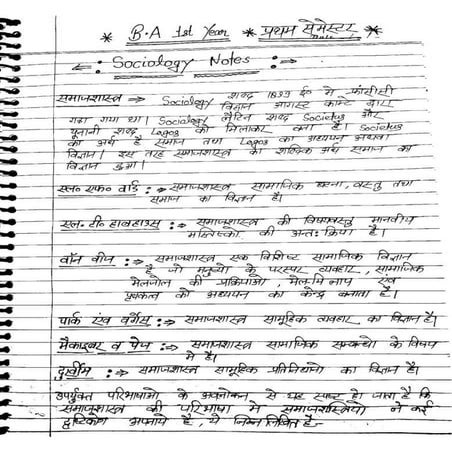 * B.A 1st Year * प्रथम सेमेस्टर *
Sociology Notes
समाजशास्त्र → Sociology शब्द 1839 ई० में फ्रांसीसी
विद्वान आगस्ट काम्टे द्वारा
गढ़ा गया था। Sociology लैटिन शब्द Socictus और
यूनानी शब्द Logos को मिलाकर बना है। Socictus
का अर्थ है समाज तथा Logos का अध्ययन अथवा
विज्ञान। इस तरह समाजशास्त्र का शाब्दिक अर्थ समाज का
विज्ञान हुआ।
एल० एफ० वार्ड :→ समाजशास्त्र सामाजिक घटना, वस्तु तथा
समाज का विज्ञान है।
एल. टी. हाबहाउस :→ समाजशास्त्र की विषयवस्तु मानवीय
मस्तिष्को की अन्तः क्रिया है।
वॉन वीज :→ समाजशास्त्र एक विशिष्ट सामाजिक विज्ञान
है जो मनुष्यो के परस्पर व्यवहार, सामाजिक
मेलजोल की प्रक्रियाओ, मेल-मिलाप एंव
पृथकत्व को अध्ययन का केन्द्र बनाता है।
पार्क एंव बर्गेस :→ समाजशास्त्र सामूहिक व्यवहार का विज्ञान है।
मैकाइवर व पेज :→ समाजशास्त्र सामाजिक सम्बन्धो के विषय
मे है।
दुर्खीम :→ समाजशास्त्र सामूहिक प्रतिनिधानो का विज्ञान है।
उपर्युक्त परिभाषाओ के अवलोकन से यह स्पष्ट हो जाता है कि
समाजशास्त्र की परिभाषा मे समाजशास्त्रियो ने कई
दृष्टिकोण अपनाये है, ये निम्न लिखित है-